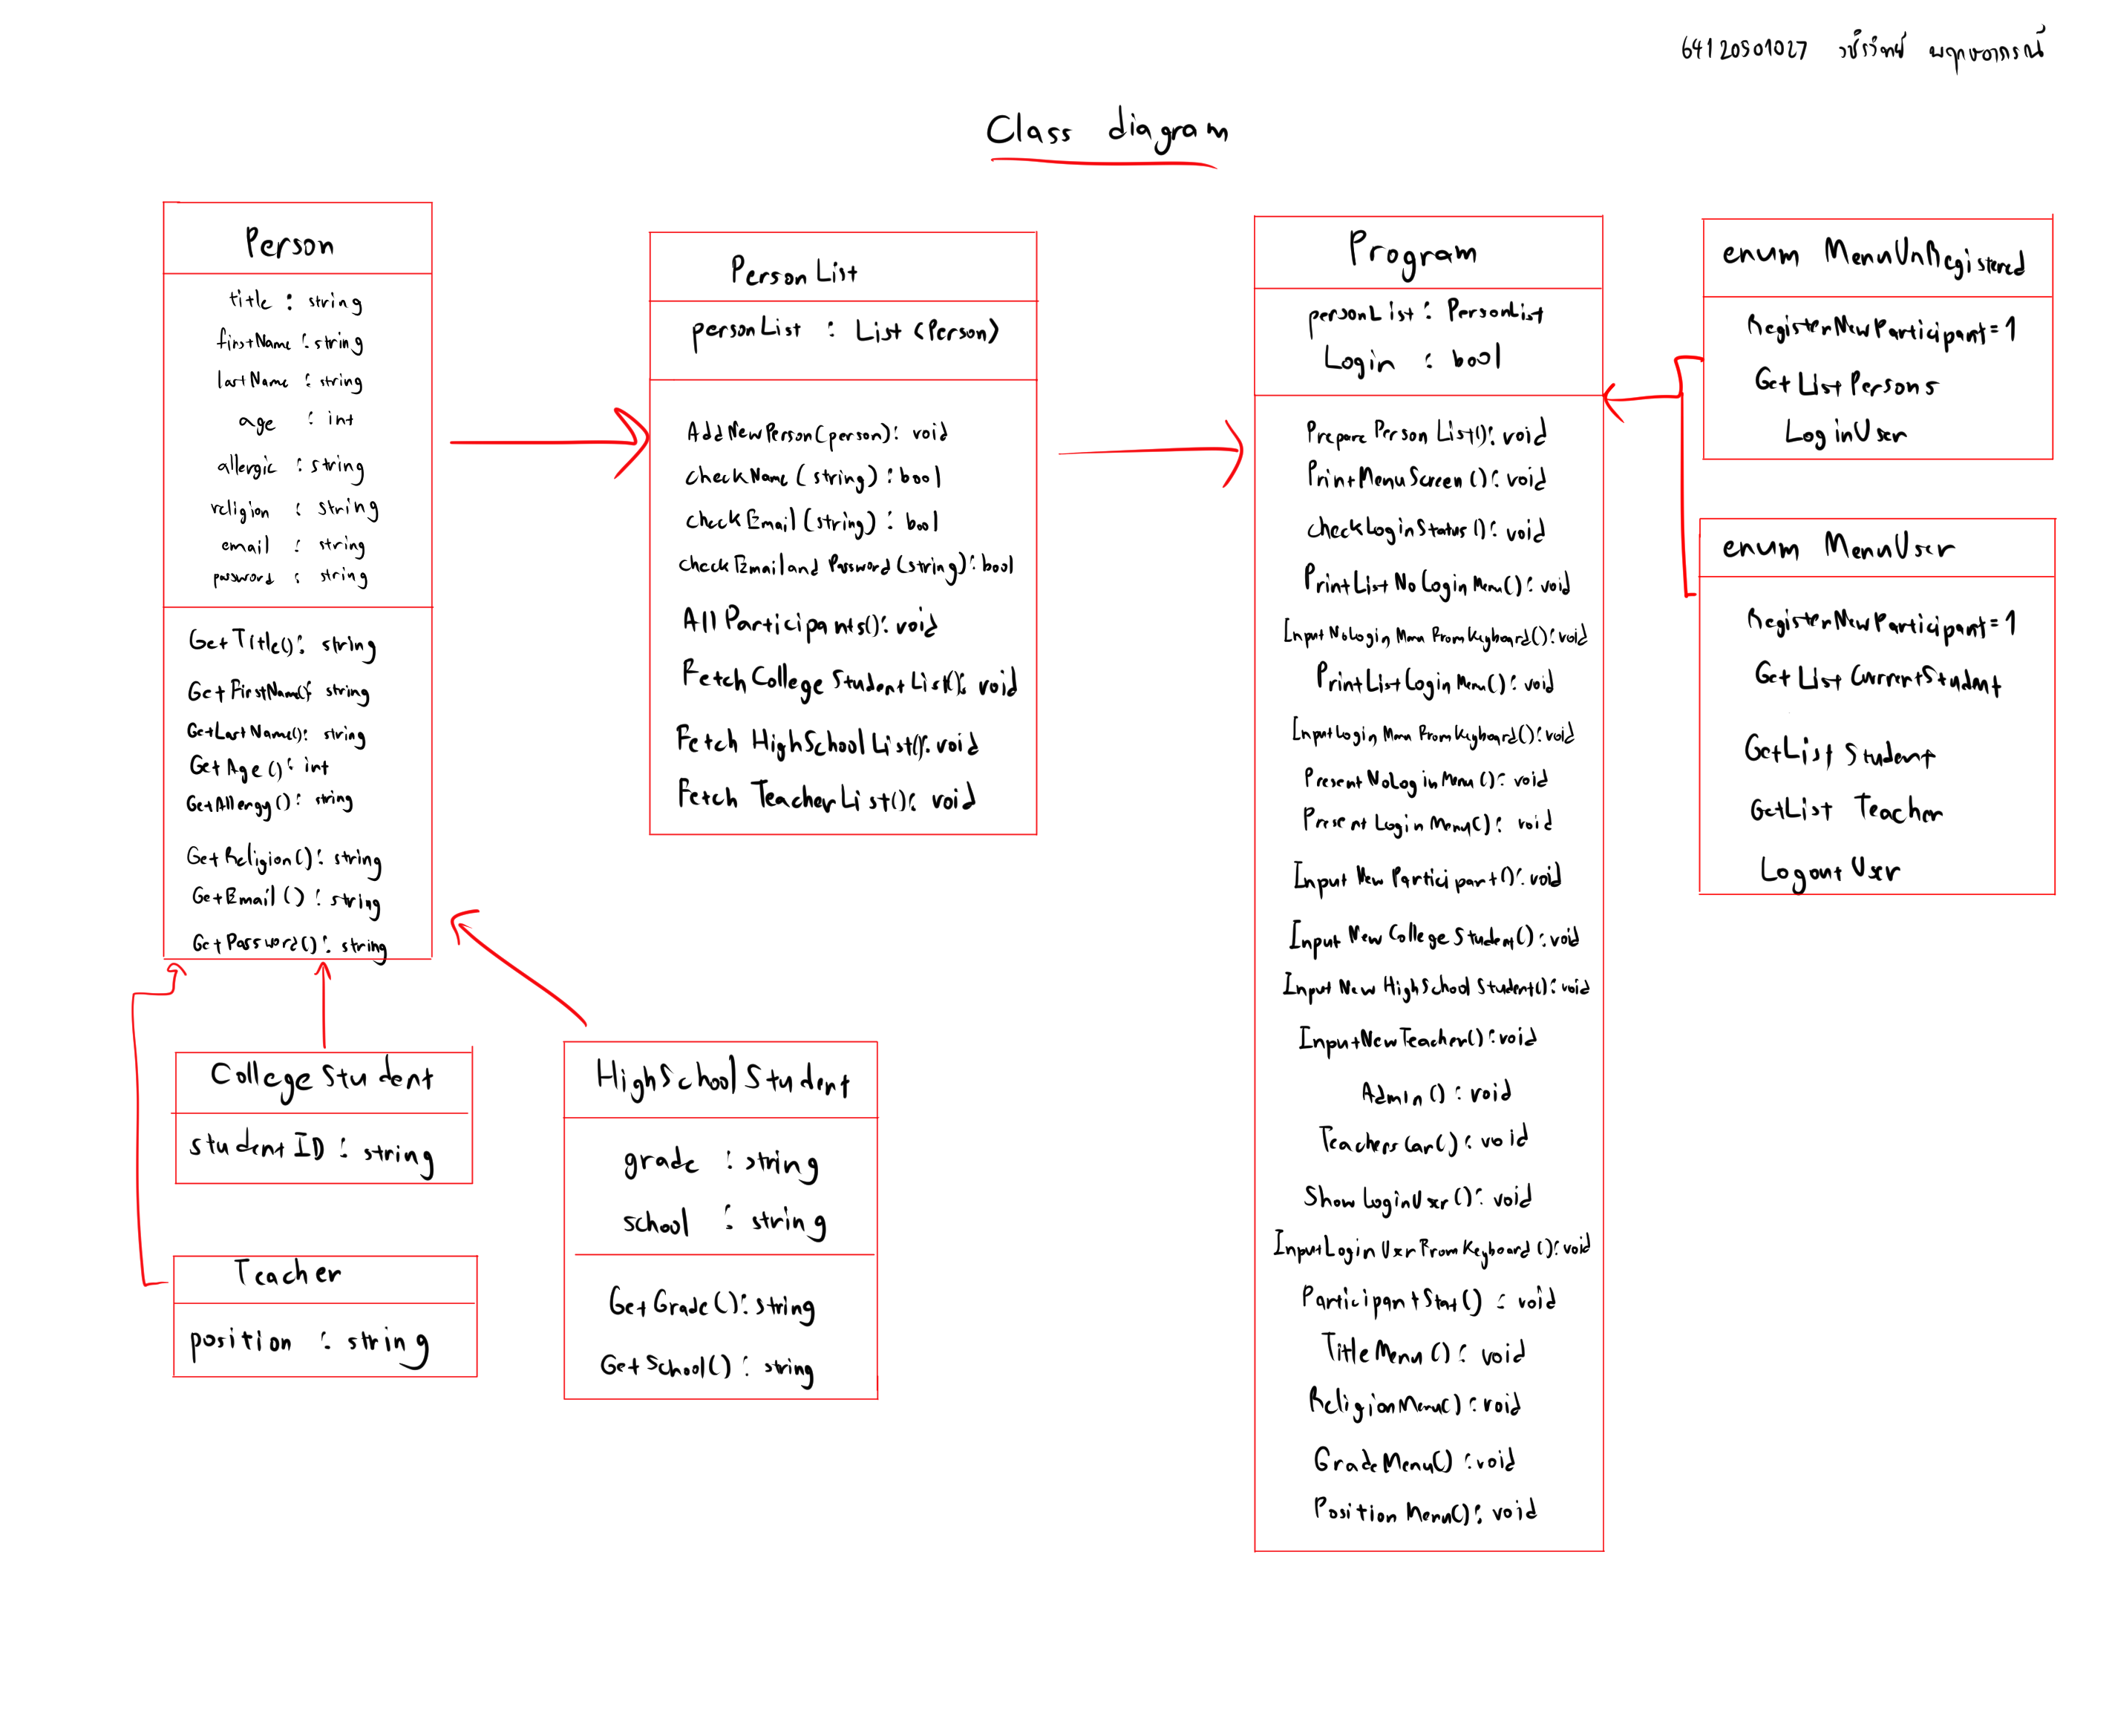 64120501027 วชิรวิทย์ พฤกษอาภรณ์
Class diagram
Person
title : string
firstName : string
lastName : string
age : int
allergic : string
religion : string
email : string
password : string
GetTitle(): string
GetFirstName(): string
GetLastName(): string
GetAge(): int
GetAllergy(): string
GetReligion(): string
GetEmail(): string
GetPassword(): string
PersonList
personList : List <Person>
AddNewPerson(person): void
checkName (string) : bool
checkEmail (string) : bool
checkEmailand Password (string): bool
All Participants(): void
Fetch College Student List(): void
Fetch HighSchool List(): void
Fetch TeacherList(): void
Program
personList : PersonList
Login : bool
Prepare Person List(): void
PrintMenuScreen (): void
checkLoginStatus (): void
PrintList No Login Menu(): void
Input NoLogin Menu From Keyboard(): void
PrintList Login Menu(): void
InputLogin Menu From Keyboard(): void
Present NoLoginMenu(): void
Present Login Menu(): void
Input New Participant(): void
Input New College Student(): void
Input New HighSchool Student(): void
InputNewTeacher(): void
Admin (): void
Teachers Car(): void
Show LoginUser (): void
InputLogin User From Keyboard (): void
ParticipantStat() : void
TitleMenu (): void
ReligionMenu(): void
GradeMenu() : void
Position Menu(): void
enum MenuUnRegistered
RegisterNewParticipant = 1
Get List Persons
LoginUser
enum MenuUser
RegisterNewParticipant = 1
Get List CurrentStudent
GetList Student
GetList Teacher
Logout User
College Student
student ID : string
Teacher
position : string
HighSchool Student
grade : string
school : string
GetGrade(): string
GetSchool() : string